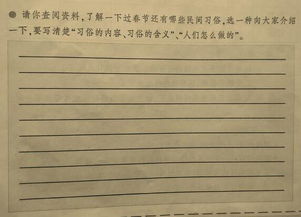 ● 请你查阅资料,了解一下过春节还有哪些民间习俗,选一种向大家介绍
一下,要写清楚“习俗的内容、习俗的含义”、“人们怎么做的”。